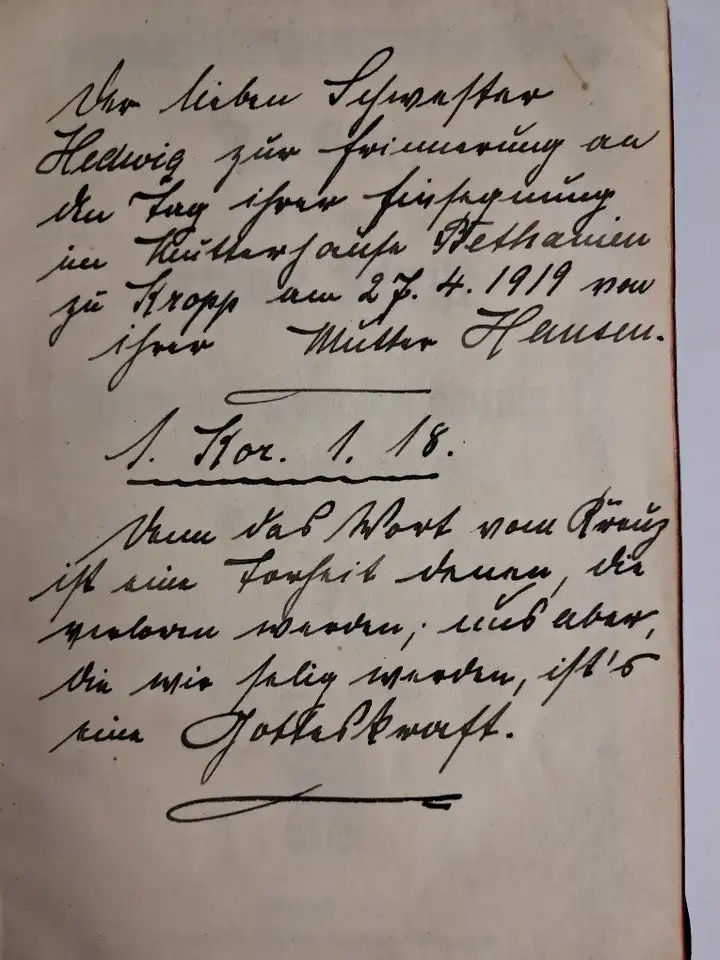 Der lieben Schwester
Hedwig zur Erinnerung an
den Tag ihrer Einsegnung
im Mutterhause Bethanien
zu Kropp am 27. 4. 1919 von
ihrer Mutter Hansen.
1. Kor. 1. 18.
Denn das Wort vom Kreuz
ist eine Torheit denen, die
verloren werden; uns aber,
die wir selig werden, ist's
eine Gotteskraft.